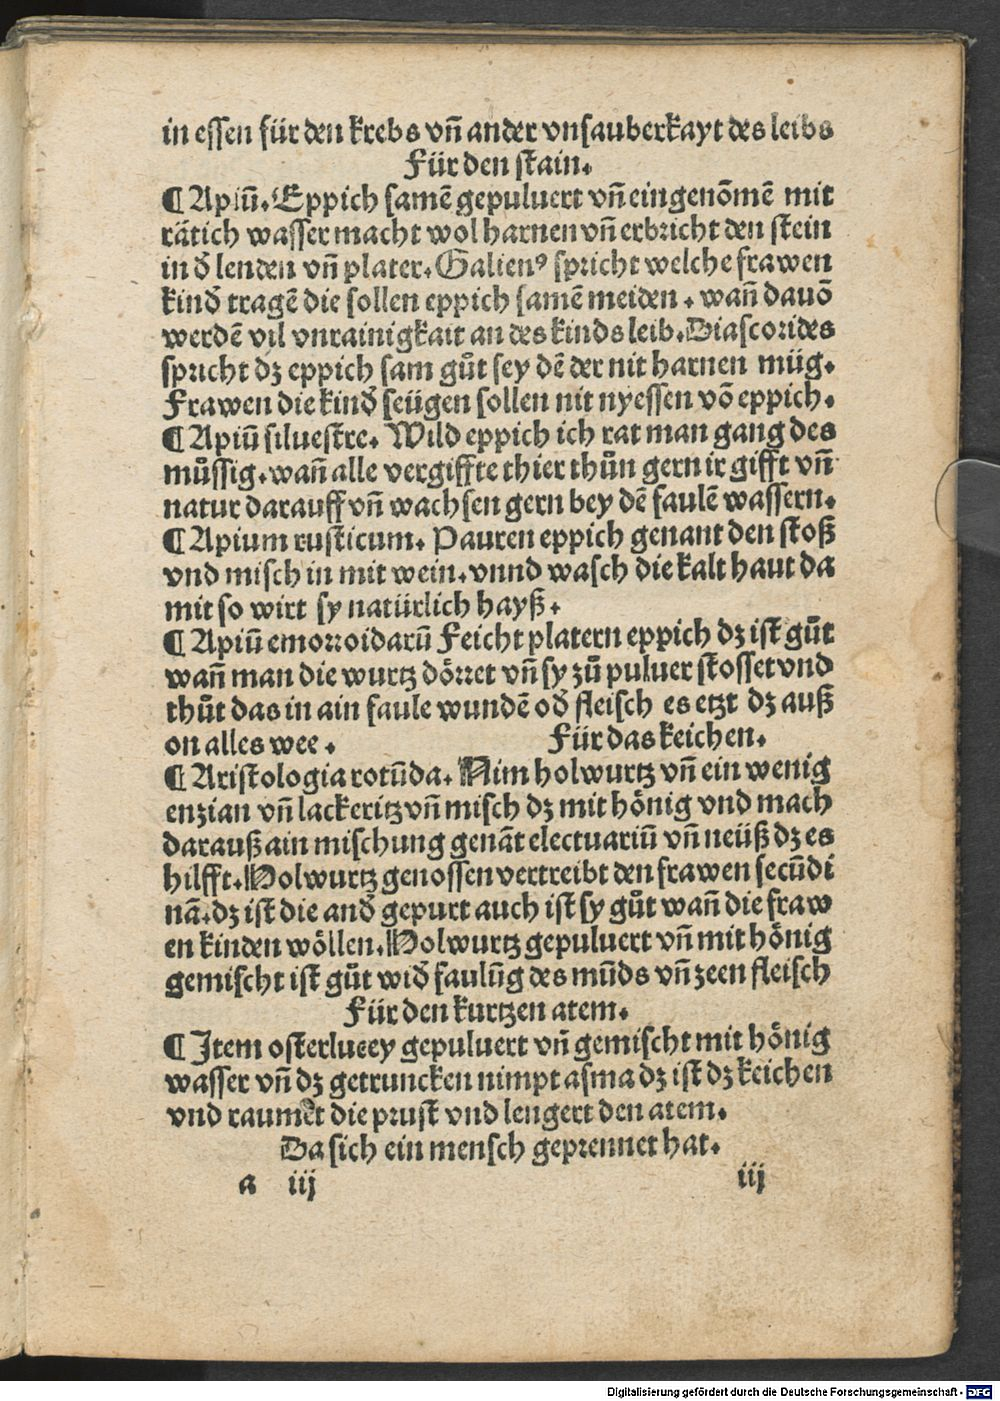 in essen für den krebs vñ ander vnsauberkayt des leibs
Für den stain.
¶ Apiū. Eppich samē gepuluert vñ eingenōmē mit
rätich wasser macht wol harnen vñ erbricht den stein
in đ lenden vñ plater. Galienꝰ spricht welche frawen
kinđ tragē die sollen eppich samē meiden. wañ dauō
werdē vil vnrainigkait an des kinds leib. Diascorides
spricht dz eppich sam gůt sey dē der nit harnen müg.
Frawen die kinđ seügen sollen nit nyessen vō eppich.
¶ Apiū siluestre. Wild eppich ich rat man gang des
můssig. wañ alle vergiffte thier thůn gern ir gifft vñ
natur darauff vñ wachsen gern bey dē faulē wassern.
¶ Apium rusticum. Pauren eppich genant den stoß
vnd misch in mit wein. vnnd wasch die kalt haut da
mit so wirt sy natürlich hayß.
¶ Apiū emorroidarū Feicht platern eppich dz ist gůt
wañ man die wurtz dörret vñ sy zů puluer stosset vnd
thůt das in ain faule wundē ođ fleisch es etzt dz auß
on alles wee. Für das keichen.
¶ Aristologia rotūda. Nim holwurtz vñ ein wenig
enzian vñ lackeritz vñ misch dz mit hönig vnd mach
darauß ain mischung genāt electuariū vñ neüß dz es
hilfft. Holwurtz genossen vertreibt den frawen secūdi
nā. dz ist die anđ gepurt auch ist sy gůt wañ die fraw
en kinden wöllen. Holwurtz gepuluert vñ mit hönig
gemischt ist gůt wiđ faulūg des mūds vñ zeen fleisch
Für den kurtzen atem.
¶ Item osterlucey gepuluert vñ gemischt mit hönig
wasser vñ dz getruncken nimpt asma dz ist dz keichen
vnd raumet die prust vnd lengert den atem.
Da sich ein mensch geprennet hat.
a iij iij
Digitalisierung gefördert durch die Deutsche Forschungsgemeinschaft - DFG